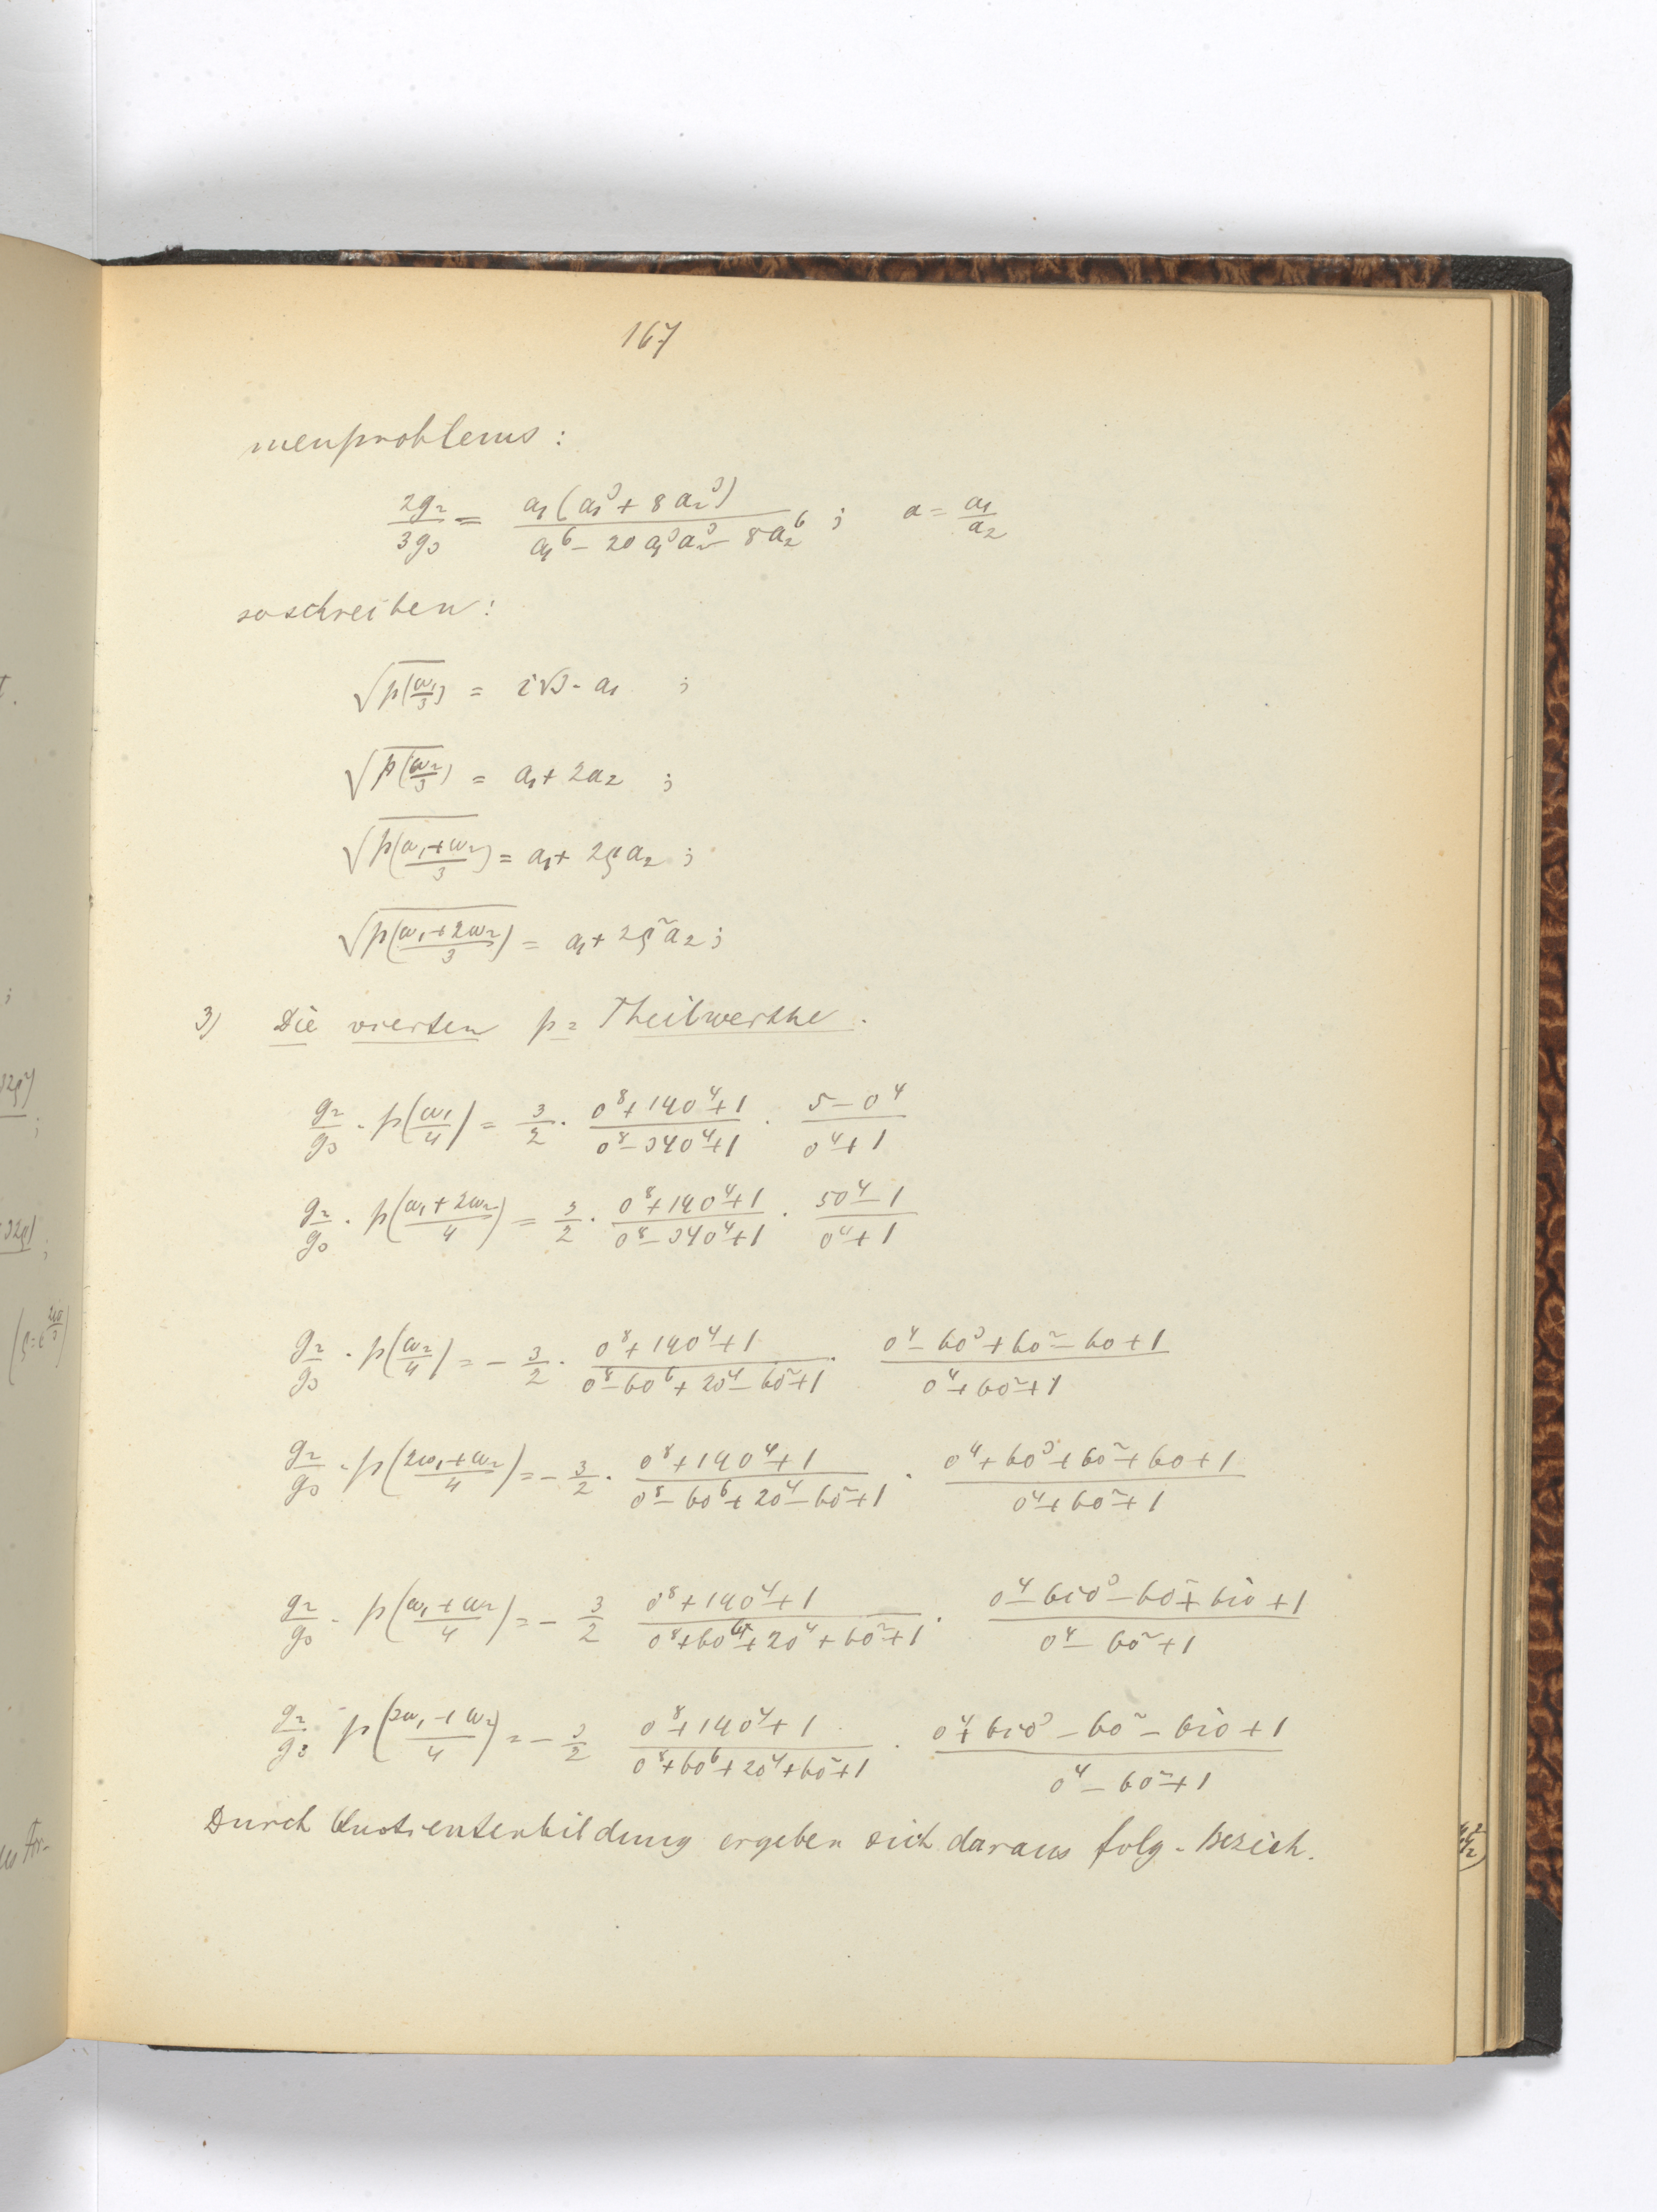 167
menproblems :
2g₂/3g₃ = a₁(a₁³ + 8a₂³)/(a₁⁶ – 20a₁³a₂³ – 8a₂⁶) ; a = a₁/a₂
so schreiben :
√p(ω₁/3) = i√3 · a₁ ;
√p(ω₂/3) = a₁ + 2a₂ ;
√p((ω₁+ω₂)/3) = a₁ + 2ρa₂ ;
√p((ω₁+2ω₂)/3) = a₁ + 2ρ²a₂ ;
3) Die vierten p = Theilwerthe .
g₂/g₃ · p(ω₁/4) = 3/2 · (o⁸+14o⁴+1)/(o⁸–34o⁴+1) · (5–o⁴)/(o⁴+1)
g₂/g₃ · p((ω₁+2ω₂)/4) = 3/2 · (o⁸+14o⁴+1)/(o⁸–34o⁴+1) · (5o⁴–1)/(o⁴+1)
g₂/g₃ · p(ω₂/4) = – 3/2 · (o⁸+14o⁴+1)/(o⁸–6o⁶+2o⁴–6o²+1) · (o⁴–6o³+6o²–6o+1)/(o⁴+6o²+1)
g₂/g₃ · p((2ω₁+ω₂)/4) = – 3/2 · (o⁸+14o⁴+1)/(o⁸–6o⁶+2o⁴–6o²+1) · (o⁴+6o³+6o²+6o+1)/(o⁴+6o²+1)
g₂/g₃ · p((ω₁+ω₂)/4) = – 3/2 (o⁸+14o⁴+1)/(o⁸+6o⁶+2o⁴+6o²+1) · (o⁴–6io³–6o²+6io+1)/(o⁴–6o²+1)
g₂/g₃ · p((3ω₁+ω₂)/4) = – 3/2 (o⁸+14o⁴+1)/(o⁸+6o⁶+2o⁴+6o²+1) · (o⁴+6io³–6o²–6io+1)/(o⁴–6o²+1)
Durch Quotientenbildung ergeben sich daraus folg. Bezieh.